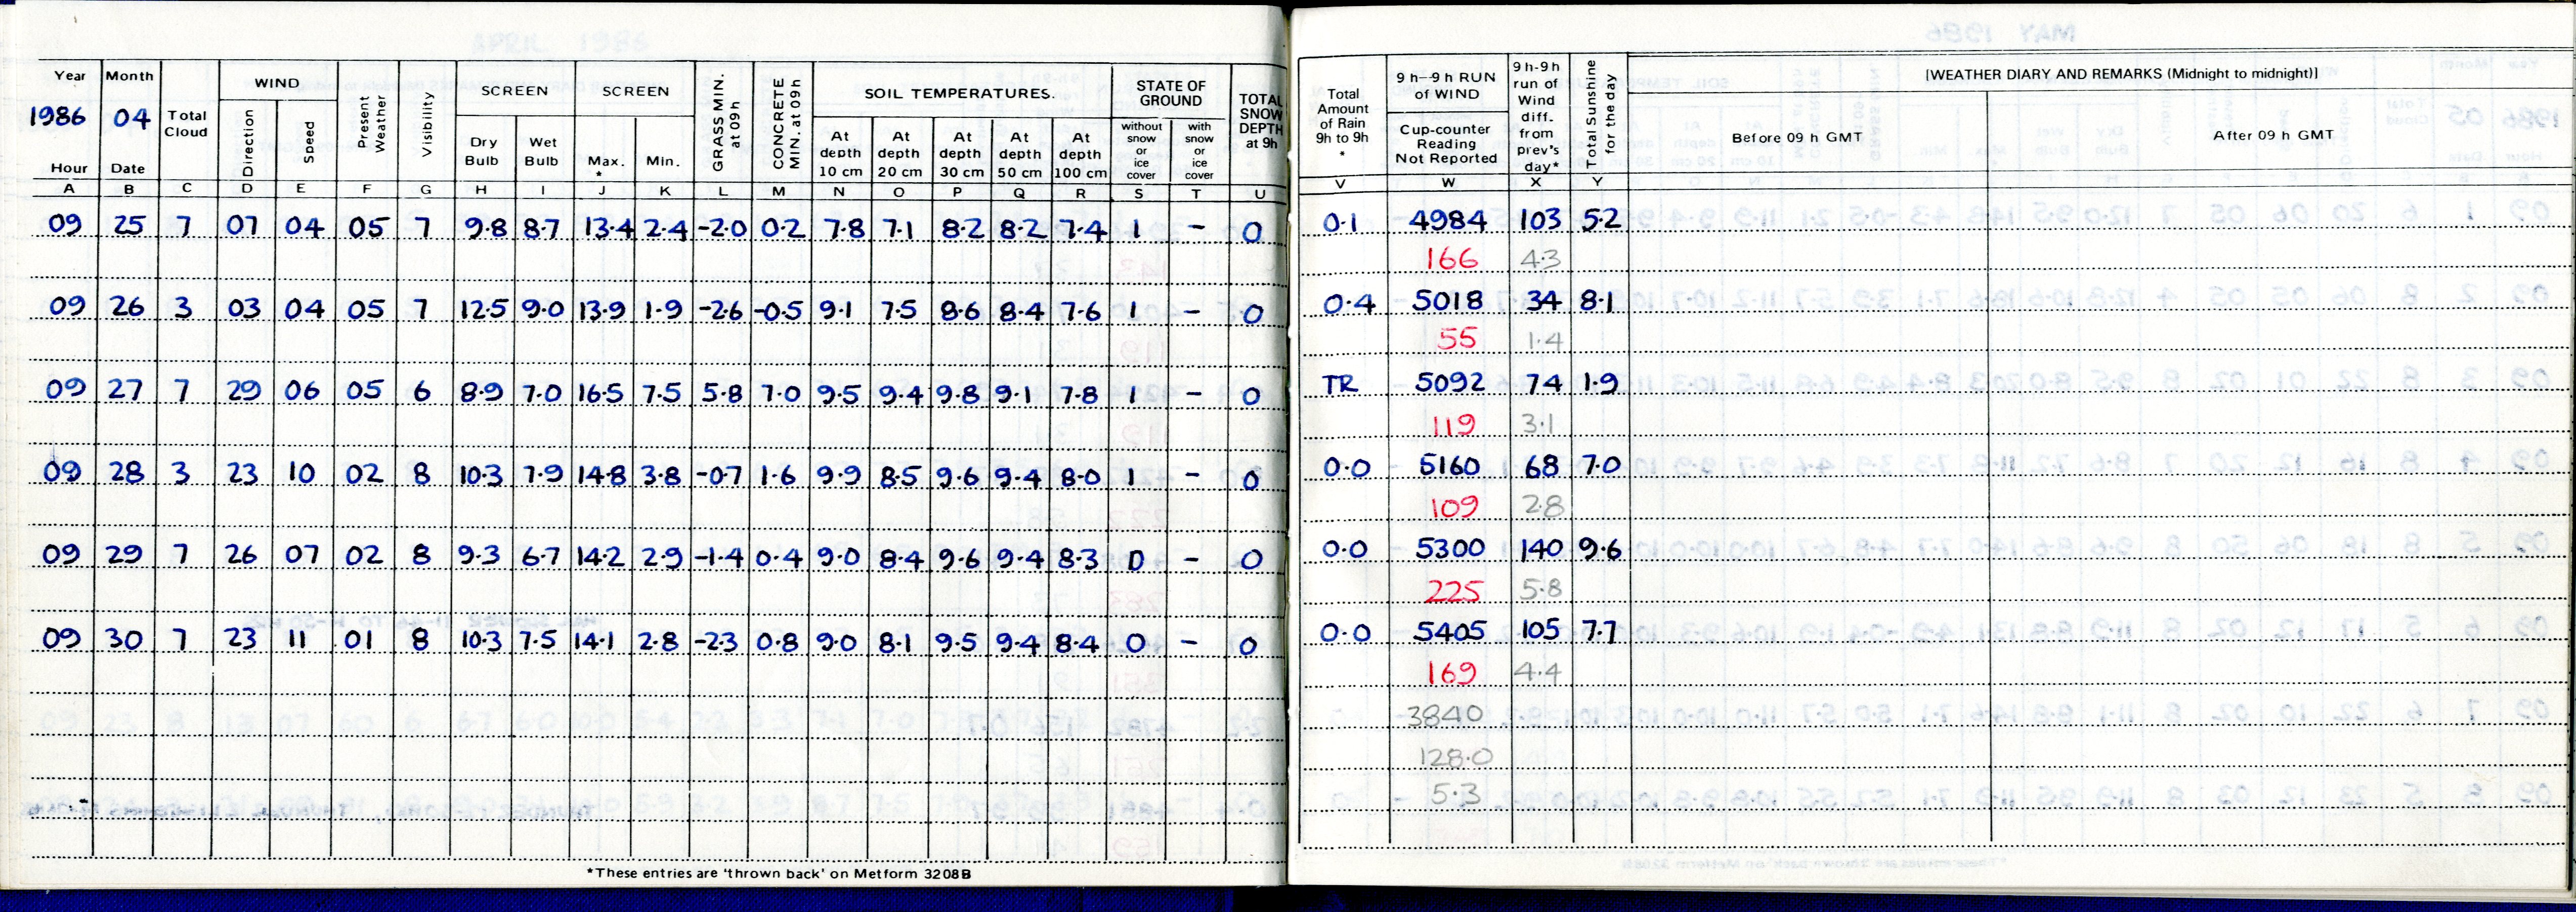 Year Month Total Cloud WIND Direction Speed Present Weather Visibility SCREEN Dry Bulb Wet Bulb SCREEN Max. * Min. GRASS MIN. at 09 h CONCRETE MIN. at 09h SOIL TEMPERATURES. At depth 10 cm At depth 20 cm At depth 30 cm At depth 50 cm At depth 100 cm STATE OF GROUND without snow or ice cover with snow or ice cover TOTAL SNOW DEPTH at 9h
1986 04
Hour Date
A B C D E F G H I J K L M N O P Q R S T U
09 25 7 07 04 05 7 9.8 8.7 13.4 2.4 -2.0 0.2 7.8 7.1 8.2 8.2 7.4 1 - 0
09 26 3 03 04 05 7 12.5 9.0 13.9 1.9 -2.6 -0.5 9.1 7.5 8.6 8.4 7.6 1 - 0
09 27 7 29 06 05 6 8.9 7.0 16.5 7.5 5.8 7.0 9.5 9.4 9.8 9.1 7.8 1 - 0
09 28 3 23 10 02 8 10.3 7.9 14.8 3.8 -0.7 1.6 9.9 8.5 9.6 9.4 8.0 1 - 0
09 29 7 26 07 02 8 9.3 6.7 14.2 2.9 -1.4 0.4 9.0 8.4 9.6 9.4 8.3 0 - 0
09 30 7 23 11 01 8 10.3 7.5 14.1 2.8 -2.3 0.8 9.0 8.1 9.5 9.4 8.4 0 - 0
*These entries are 'thrown back' on Metform 3208B
Total Amount of Rain 9h to 9h * 9 h–9 h RUN of WIND Cup-counter Reading Not Reported 9 h-9 h run of Wind diff. from prev's day* Total Sunshine for the day [WEATHER DIARY AND REMARKS (Midnight to midnight)]
Before 09 h GMT After 09 h GMT
V W X Y
0.1 4984 103 5.2
166 4.3
0.4 5018 34 8.1
55 1.4
TR 5092 74 1.9
119 3.1
0.0 5160 68 7.0
109 2.8
0.0 5300 140 9.6
225 5.8
0.0 5405 105 7.7
169 4.4
3840
128.0
5.3